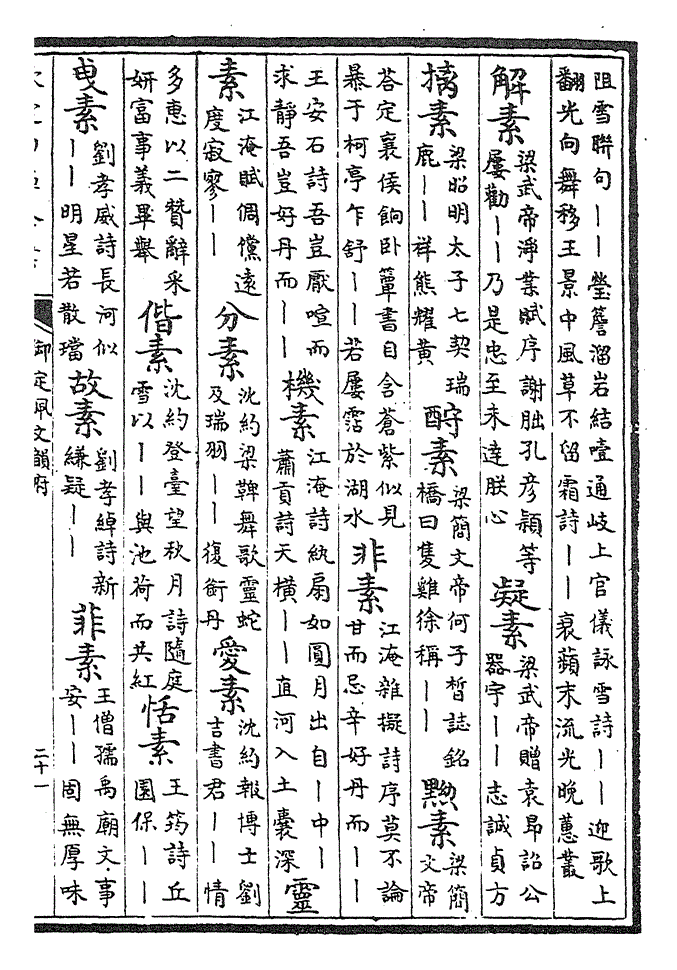 阻雪聯句――瑩簷溜岩結噎通岐上官儀詠雪詩――迎歌上
翻光向舞移王景中風草不留霜詩――哀蘋末流光晚蕙叢
解素
梁武帝淨業賦序謝朏孔彦穎等
屢勸――乃是忠至未達朕心
凝素
梁武帝贈袁昂詔公
器宇――志誠貞方
摛素
梁昭明太子七契瑞
鹿――祥熊耀黄
酹素
梁簡文帝何子晳誌銘
橋曰隻雞徐稱――
黝素
梁簡
文帝
答定襄侯餉卧簟書目含蒼紫似見
暴于柯亭乍舒――若屢霑於湖水
非素
江淹雜擬詩序莫不論
甘而忌辛好丹而――
王安石詩吾豈厭喧而
求靜吾豈好丹而――
機素
江淹詩紈扇如圓月出自―中―
蕭貢詩天橫――直河入土囊深
靈
素
江淹賦倜儻遠
度寂寥――
分素
沈約梁鞞舞歌靈蛇
及瑞羽――復銜丹
愛素
沈約報博士劉
吉書君――情
多惠以二贊辭采
妍富事義畢舉
偕素
沈約登臺望秋月詩隨庭
雪以――與池荷而共紅
恬素
王筠詩丘
園保――
曳素
劉孝威詩長河似
――明星若散璫
故素
劉孝綽詩新
縑疑――
菲素
王僧孺禹廟文事
安――固無厚味
御定佩文韻府
二十一